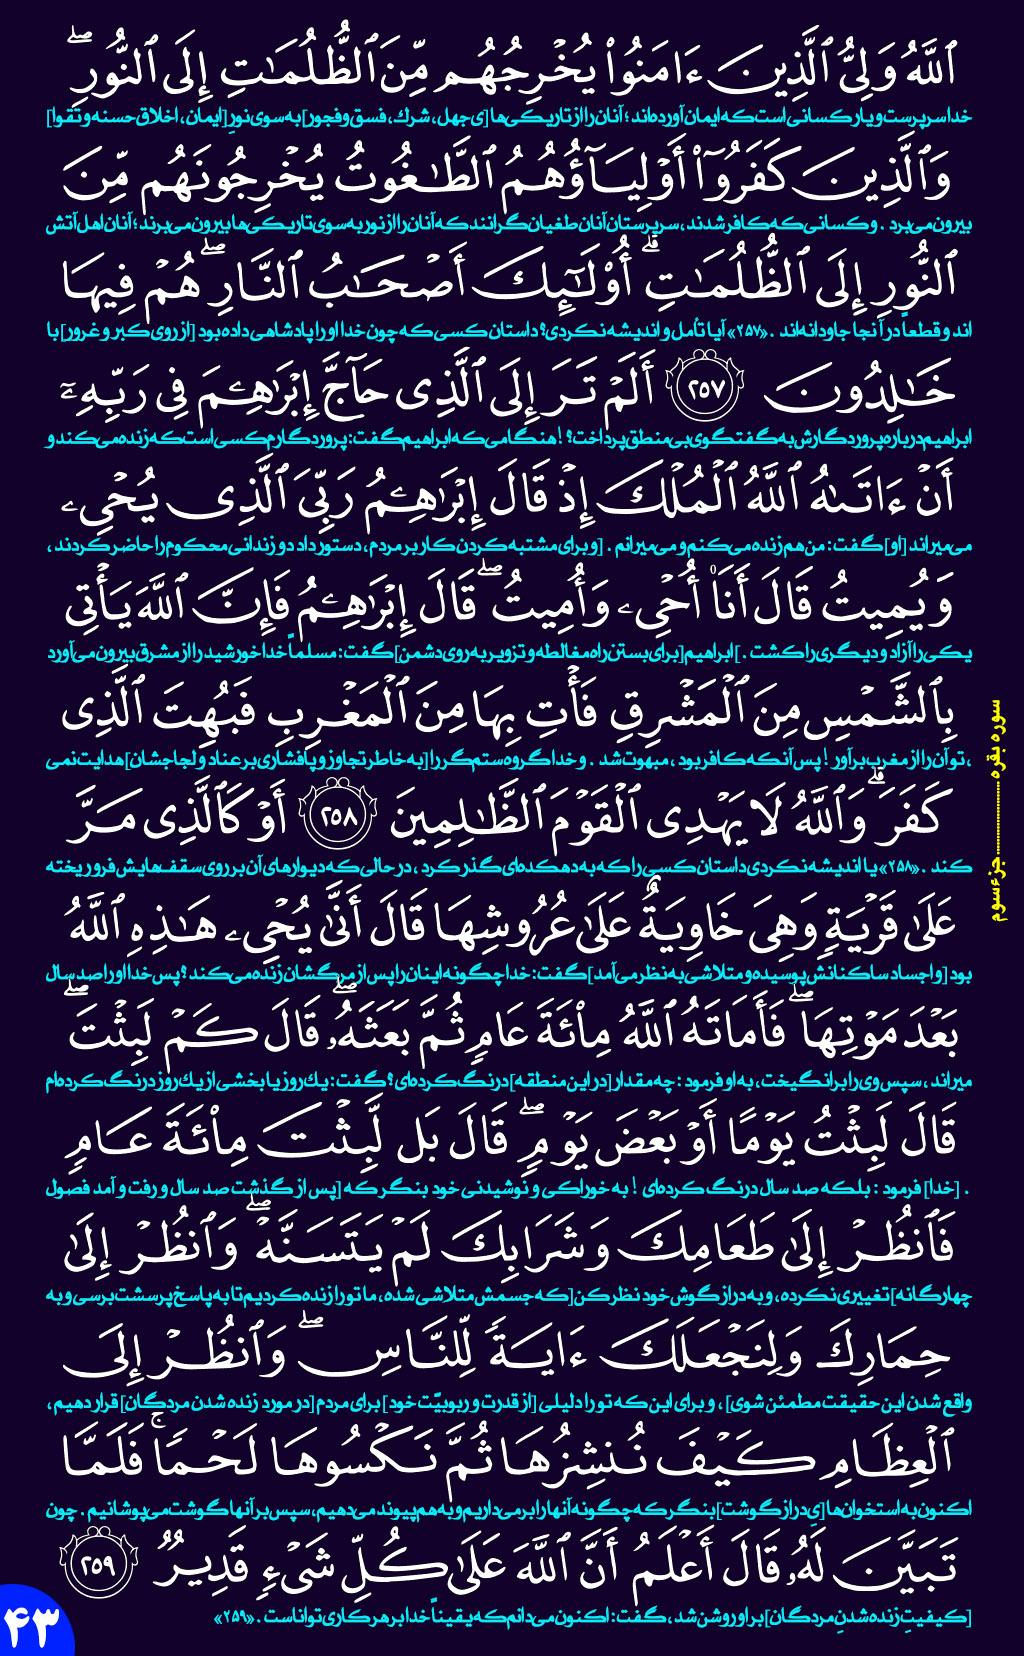 ٱللَّهُ وَلِيُّ ٱلَّذِينَ ءَامَنُواْ يُخْرِجُهُم مِّنَ ٱلظُّلُمَـٰتِ إِلَى ٱلنُّورِۖ
خدا سرپرست و یار کسانی است که ایمان آورده‌اند ؛ آنان را از تاریکی‌ها [یِ جهل ، شرك ، فسق و فجور] به سوی نورِ [ایمان ، اخلاق حسنه و تقوا]
وَٱلَّذِينَ كَفَرُوٓاْ أَوْلِيَآؤُهُمُ ٱلطَّـٰغُوتُ يُخْرِجُونَهُم مِّنَ
بیرون می‌برد . و کسانی که کافر شدند ، سرپرستان آنان طغیان گرانند که آنان را از نور به سوی تاریکی‌ها بیرون می‌برند ؛ آنان اهل آتش
ٱلنُّورِ إِلَى ٱلظُّلُمَـٰتِۗ أُوْلَـٰٓئِكَ أَصْحَـٰبُ ٱلنَّارِۖ هُمْ فِيهَا
اند و قطعاً در آنجا جاودانه‌اند . «۲۵۷» آیا تأمل و اندیشه نکردی؟ داستان کسی که چون خدا او را پادشاهی داده بود [از روی کبر و غرور] با
خَـٰلِدُونَ ۲۵۷ أَلَمْ تَرَ إِلَى ٱلَّذِى حَآجَّ إِبْرَٰهِـۧمَ فِى رَبِّهِۦٓ
ابراهیم درباره پروردگارش به گفتگوی بی منطق پرداخت؟ ! هنگامی که ابراهیم گفت : پروردگارم کسی است که زنده می‌کند و
أَنْ ءَاتَىٰهُ ٱللَّهُ ٱلْمُلْكَ إِذْ قَالَ إِبْرَٰهِـۧمُ رَبِّىَ ٱلَّذِى يُحْىِۦ
می‌میراند [او] گفت : من هم زنده می‌کنم و می‌میرانم . [و برای مشتبه کردن کار بر مردم ، دستور داد دو زندانی محکوم را حاضر کردند ،
وَيُمِيتُ قَالَ أَنَا۠ أُحْىِۦ وَأُمِيتُۖ قَالَ إِبْرَٰهِـۧمُ فَإِنَّ ٱللَّهَ يَأْتِى
یکی را آزاد و دیگری را کشت . ] ابراهیم [برای بستن راه مغالطه و تزویر به روی دشمن] گفت : مسلماً خدا خورشید را از مشرق بیرون می‌آورد
بِٱلشَّمْسِ مِنَ ٱلْمَشْرِقِ فَأْتِ بِهَا مِنَ ٱلْمَغْرِبِ فَبُهِتَ ٱلَّذِى
، تو آن را از مغرب برآور ! پس آنکه کافر بود ، مبهوت شد . و خدا گروه ستم گر را [به خاطر تجاوز و پافشاری بر عناد و لجاجشان] هدایت نمی
كَفَرَۗ وَٱللَّهُ لَا يَهْدِى ٱلْقَوْمَ ٱلظَّـٰلِمِينَ ۲۵۸ أَوْ كَٱلَّذِى مَرَّ
کند . «۲۵۸» یا اندیشه نکردی داستان کسی را که به دهکده‌ای گذر کرد ، در حالی که دیوارهای آن بر روی سقف‌هایش فرو ریخته
عَلَىٰ قَرْيَةٍ وَهِىَ خَاوِيَةٌ عَلَىٰ عُرُوشِهَا قَالَ أَنَّىٰ يُحْىِۦ هَـٰذِهِ ٱللَّهُ
بود [و اجساد ساکنانش پوسیده و متلاشی به نظر می‌آمد] گفت : خدا چگونه اینان را پس از مرگشان زنده می‌کند؟ پس خدا او را صد سال
بَعْدَ مَوْتِهَاۖ فَأَمَاتَهُ ٱللَّهُ مِاْئَةَ عَامٍ ثُمَّ بَعَثَهُۥۖ قَالَ كَمْ لَبِثْتَۖ
میراند ، سپس وی را برانگیخت ، به او فرمود : چه مقدار [در این منطقه] درنگ کرده‌ای؟ گفت : یك روز یا بخشی از یك روز درنگ کرده‌ام
قَالَ لَبِثْتُ يَوْمًا أَوْ بَعْضَ يَوْمٍۖ قَالَ بَل لَّبِثْتَ مِاْئَةَ عَامٍ
. [خدا] فرمود : بلکه صد سال درنگ کرده‌ای ! به خوراکی و نوشیدنی خود بنگر که [پس از گذشت صد سال و رفت و آمد فصول
فَٱنظُرْ إِلَىٰ طَعَامِكَ وَشَرَابِكَ لَمْ يَتَسَنَّهْۖ وَٱنظُرْ إِلَىٰ
چهارگانه] تغییری نکرده ، و به درازگوش خود نظر کن [که جسمش متلاشی شده ، ما تو را زنده کردیم تا به پاسخ پرسشت برسی و به
حِمَارِكَ وَلِنَجْعَلَكَ ءَايَةً لِّلنَّاسِۖ وَٱنظُرْ إِلَى
واقع شدن این حقیقت مطمئن شوی] ، و برای این که تو را دلیلی [از قدرت و ربوبیّت خود] برای مردم [در مورد زنده شدن مردگان] قرار دهیم ،
ٱلْعِظَامِ كَيْفَ نُنشِزُهَا ثُمَّ نَكْسُوهَا لَحْمًاۚ فَلَمَّا
اکنون به استخوان‌ها [یِ درازگوشت] بنگر که چگونه آنها را برمی‌داریم و به هم پیوند می‌دهیم ، سپس بر آنها گوشت می‌پوشانیم . چون
تَبَيَّنَ لَهُۥ قَالَ أَعْلَمُ أَنَّ ٱللَّهَ عَلَىٰ كُلِّ شَىْءٍ قَدِيرٌ ۲۵۹
[کیفیتِ زنده شدنِ مردگان] بر او روشن شد ، گفت : اکنون می‌دانم که یقیناً خدا بر هر کاری تواناست . «۲۵۹»
سوره بقره .................... جزء سوم
۴۳